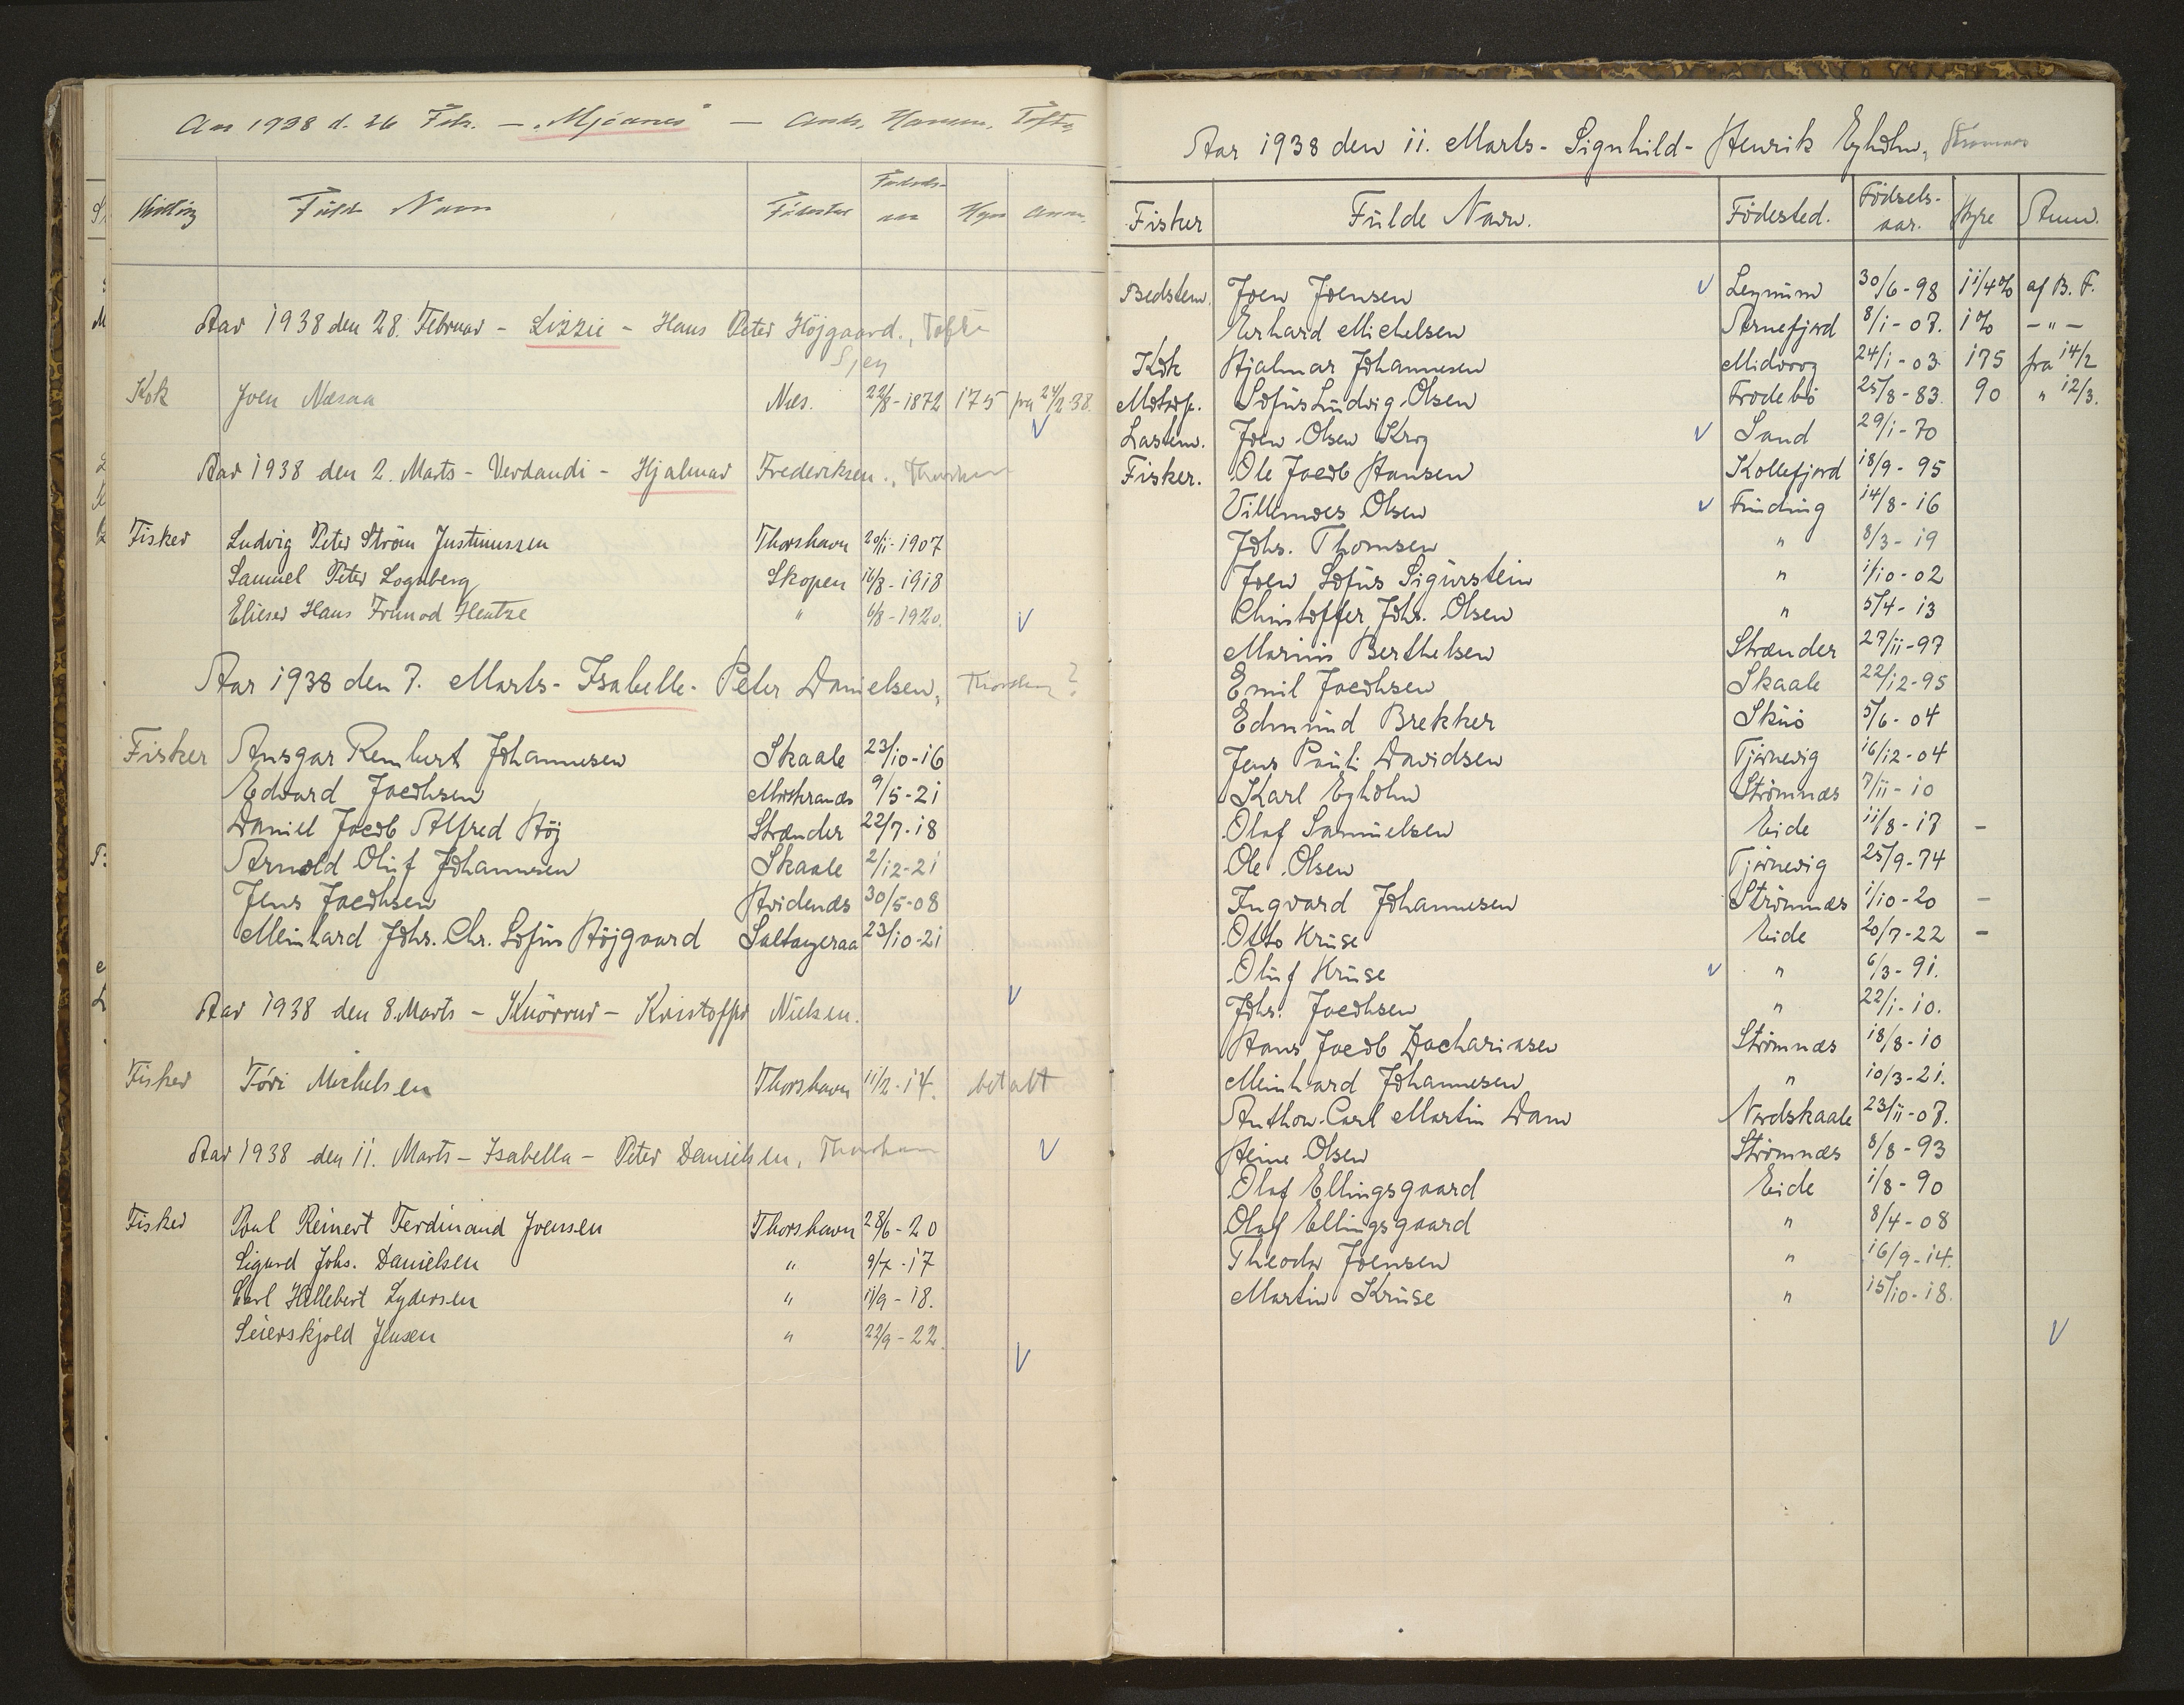 Aar 1938 d. 26 Feb. — "Mjóanes" — Andr. Hansen, Tofte
Stilling Fulde Navn Fødested Fødsels-aar Hyre Anm.
Aar 1938 den 28. Februar - Lizzie - Hans Peter Höjgaard., Tofte
Kok Joen Næsaa Næs. 22/8-1872 175 fra 24/2 38.
Aar 1938 den 2. Marts - Verdandi - Hjalmar Frederiksen., Thorshavn
Fisker Ludvig Peter Ström Justinussen Thorshavn 20/11-1907
Samuel Peter Lognberg Skopen 16/8-1918
Elieser Haus Frimod Hentze " 6/8-1920.
Aar 1938 den 7. Marts - Isabella - Peter Danielsen, Thorshavn?
Fisker Ansgar Rembert Johannesen Skaale 23/10-16
Edvard Jacobsen Morskranes 9/5-21
Daniel Jacob Alfred Höj Strænder 22/7-18
Arnold Oluf Johannesen Skaale 2/12-21
Jens Jacobsen Hvidenæs 30/5-08
Meinhard Johs. Chr. Sofus Höjgaard Saltangeraa 23/10-21
Aar 1938 den 8. Marts - Knörrur - Kristoffer Nielsen.
Fisker Tóri Michelsen Thorshavn 11/2-14. betalt
Aar 1938 den 11. Marts - Isabella - Peter Danielsen, Thorshavn
Fisker Poul Reinert Ferdinand Joensen Thorshavn 28/6-20
Sigurd Johs. Danielsen " 9/7-17
Carl Hillebert Lydersen " 11/9-18.
Seierskjold Jensen " 22/9-22.
Aar 1938 den 11. Marts - Signhild - Henrik Eyholm, Strømnæs
Fisker Fülde Navn. Födested. Födsels-aar. Hyre Anm.
Bedstem. Joen Joensen Leynum 30/6-98 1 1/4% af B. F.
Erhard Michelsen Arnefjord 8/1-07. 1% - " -
Kok Hjalmar Johannesen Midvaag 24/1-03 175 fra 14/2
Motorp. Sofüs Lüdvig Olsen Frodebö 25/8-83. 90 " 12/3.
Lastem. Joen Olsen Krog Sand 29/1-70
Fisker. Ole Jacob Hansen Kollefjord 18/9-95
Villemoes Olsen Fünding 14/8-16
Johs. Thomsen " 8/3-19
Joen Sofüs Sigürstein " 1/10-02
Christoffer Johs. Olsen " 5/4-13
Mariüs Berthelsen Strænder 27/11-97
Emil Jacobsen Skaale 22/12-95
Edmünd Brekker Sküö 5/6-04
Jens Paüli Davidsen Tjörnevig 16/12-04
Karl Eyholm Strömnæs 7/11-10
Olaf Samüelsen Eide 11/8-17 -
Ole Olsen Tjörnevig 25/9-74
Ingvard Johannesen Strömnæs 1/10-20 -
Otto Krüse Eide 20/7-22 -
Olüf Krüse " 6/3-91.
Johs. Jacobsen " 22/1-10.
Hans Jacob Zachariasen Strömnæs 18/8-10
Meinhard Johannesen " 10/3-21.
Anthon Carl Martin Dam Nordskaale 23/11-07.
Heine Olsen Strömnæs 8/8-93
Olaf Ellingsgaard Eide 1/8-90
Olaf Ellingsgaard " 8/4-08
Theodor Joensen " 16/9-14.
Martin Krüse " 15/10-18.